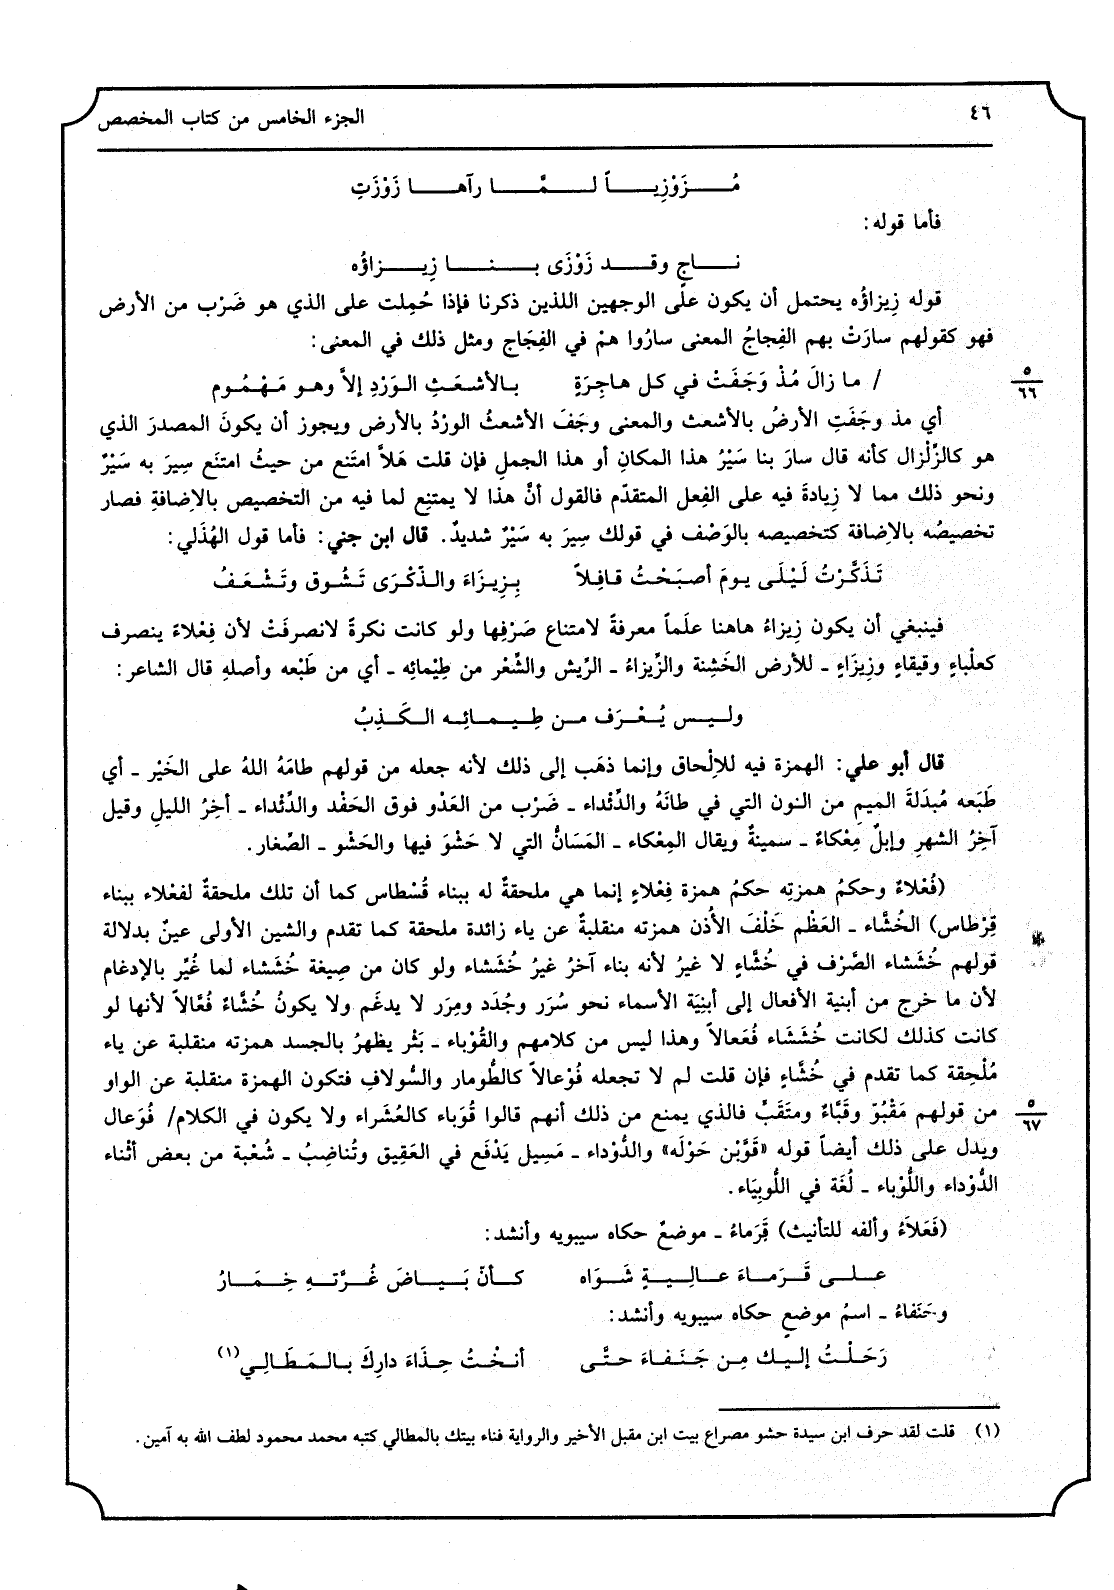 ٤٦
الجزء الخامس من كتاب المخصص
مُـــزَوْزِيـــاً لـــمَّـــا رآهـــا زَوْزَتِ
فأما قوله:
نـــاجٍ وقـــد زَوْزَى بـــنـــا زِيـــزاؤُه
قوله زِيزاؤُه يحتمل أن يكون على الوجهين اللذين ذكرنا فإذا حُمِلت على الذي هو ضَرْب من الأرض
فهو كقولهم سارَتْ بهم الفِجاجُ المعنى سارُوا همْ في الفِجَاج ومثل ذلك في المعنى:
/ ما زالَ مُذْ وَجَفَتْ في كل هاجِرَةٍ بـالأشـعَـثِ الـوَرْدِ إلاَّ وهـو مَـهْـمُـوم
٥
٦٦
أي مذ وجَفَتِ الأرضُ بالأشعث والمعنى وجَفَ الأشعثُ الورْدُ بالأرض ويجوز أن يكونَ المصدرَ الذي
هو كالزِّلْزال كأنه قال سارَ بنا سَيْرُ هذا المكانِ أو هذا الجملِ فإن قلت هَلاَّ امتَنع من حيثُ امتنَع سِيرَ به سَيْرٌ
ونحو ذلك مما لا زِيادةَ فيه على الفِعل المتقدّم فالقول أنَّ هذا لا يمتنِع لما فيه من التخصيص بالإضافةِ فصار
تخصيصُه بالإضافة كتخصيصه بالوَصْف في قولك سِيرَ به سَيْرٌ شديدٌ. قال ابن جني: فأما قول الهُذَلي:
تَـذَكَّـرْتُ لَـيْلَـى يـومَ أصبَـحْـتُ قـافِـلاً بِـزِيـزَاءَ والـذِّكْـرَى تَـشُـوق وتَـشْـعَـفُ
فينبغي أن يكون زِيزاءُ هاهنا علَماً معرفةً لامتناع صَرْفِها ولو كانت نكرةً لانصرفَتْ لأن فِعْلاءً ينصرف
كعلْباءٍ وقيقاءٍ وزِيزَاءٍ ـ للأرض الخَشِنة والزِّيزاءُ ـ الرِّيش والشَّعْر من طِيْمائِه ـ أي من طَبْعه وأصلهِ قال الشاعر:
ولـيـس يُـعْـرَف مـن طِـيـمـائـه الـكَـذِبُ
قال أبو علي: الهمزة فيه للإلْحاق وإنما ذهَب إلى ذلك لأنه جعله من قولهم طامَهُ اللهُ على الخَيْر ـ أي
طَبَعه مُبدَلةَ الميمِ من النون التي في طانَهُ والدِّئْداء ـ ضَرْب من العَدْو فوق الحَفْد والدِّئْداء ـ آخِرُ الليلِ وقيل
آخِرُ الشهرِ وإبلٌ مِعْكاءٌ ـ سمينةٌ ويقال المِعْكاء ـ المَسَانُّ التي لا حَشْوَ فيها والحَشْو ـ الصِّغار.
(فُعْلاءٌ وحكمُ همزتِه حكمُ همزة فِعْلاءٍ إنما هي ملحقةٌ له ببناء قُسْطاس كما أن تلك ملحقةٌ لفعْلاء ببناء
قِرْطاس) الخُشَّاء ـ العَظْم خَلْفَ الأُذن همزته منقلبةٌ عن ياء زائدة ملحقة كما تقدم والشين الأولى عينٌ بدلالة
قولهم خُشَشاء الصَّرْف في خُشَّاءٍ لا غيرُ لأنه بناء آخرُ غيرُ خُشَشاء ولو كان من صِيغة خُشَشاء لما غُيِّر بالإدغام
لأن ما خرج من أبنية الأفعال إلى أبنِيَة الأسماء نحو سُرَر وجُدَد ومِرَر لا يدغَم ولا يكونُ خُشَّاءٌ فُعَّالاً لأنها لو
كانت كذلك لكانت خُشَشَاء فُعَعالاً وهذا ليس من كلامهم والقُوْباء ـ بَثْر يظهرُ بالجسد همزته منقلبة عن ياء
مُلْحِقة كما تقدم في خُشَّاءٍ فإن قلت لم لا تجعله فُوْعالاً كالطُّومار والسُّولافِ فتكون الهمزة منقلبة عن الواو
من قولهم مَقْبُوّ وقَبَّاءٌ ومتَقَبٍّ فالذي يمنع من ذلك أنهم قالوا قُوَباء كالعُشَراء ولا يكون في الكلام/ فُوَعال
٥
٦٧
ويدل على ذلك أيضاً قوله «قَوَّبْن حَوْلَه» والدُّوْداء ـ مَسِيل يَدْفَع في العَقِيق وتُناضِبُ ـ شُعْبة من بعض أثْناء
الدُّوْداء واللُّوْباء ـ لُغَة في اللُّوبِيَاء.
(فَعَلاَءُ وألفه للتأنيث) قَرَماءُ ـ موضعٌ حكاه سيبويه وأنشد:
عـلـى قَـرَمـاءَ عـالِـيـةٍ شَـوَاه كـأنّ بَـيـاضَ غُـرَّتـهِ خِـمَـارُ
وجَنَفاءُ ـ اسمُ موضعٍ حكاه سيبويه وأنشد:
رَحَـلْـتُ إلـيـك مِـن جَـنَـفـاءَ حـتَّـى أنـخْـتُ حِـذَاءَ دارِكَ بـالـمَـطَـالِـي(١)
(١) قلت لقد حرف ابن سيدة حشو مصراع بيت ابن مقبل الأخير والرواية فناء بيتك بالمطالي كتبه محمد محمود لطف الله به آمين.